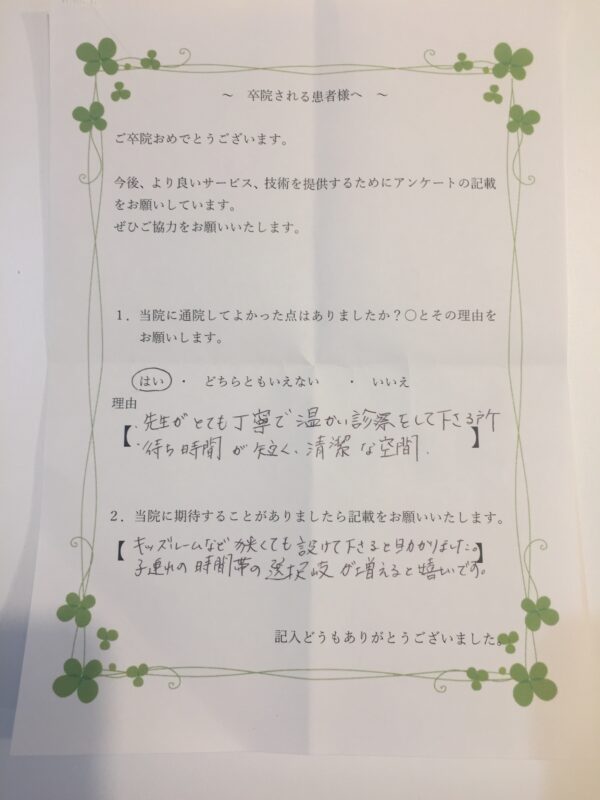 ～ 卒院される患者様へ ～
ご卒院おめでとうございます。
今後、より良いサービス、技術を提供するためにアンケートの記載
をお願いしています。
ぜひご協力をお願いいたします。
1．当院に通院してよかった点はありましたか？〇とその理由を
お願いします。
はい ・ どちらともいえない ・ いいえ
理由
【・先生がとても丁寧で温かい診察をして下さる所
・待ち時間が短く、清潔な空間. 】
2．当院に期待することがありましたら記載をお願いいたします。
【キッズルームなど狭くても設けて下さると助かりました。】
子連れの時間帯の選択肢が増えると嬉しいです。
記入どうもありがとうございました。